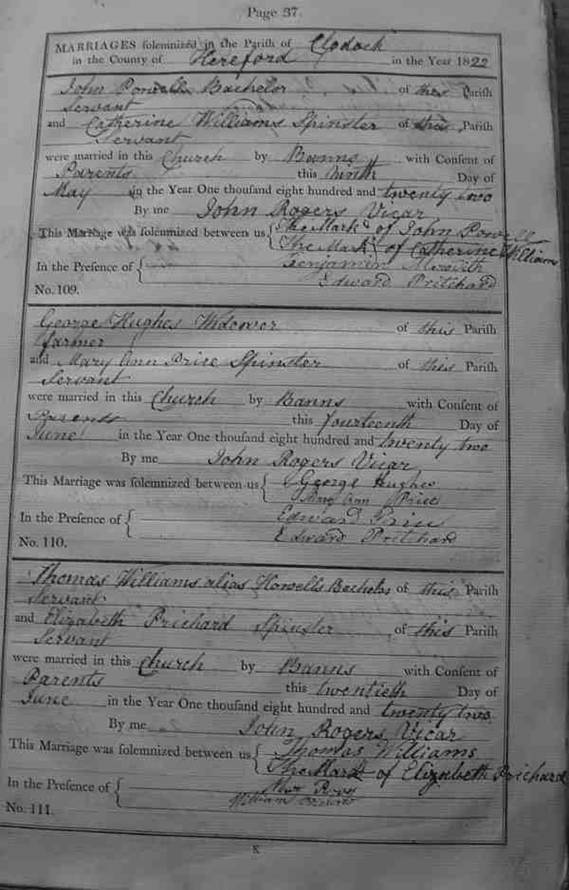 Page 37.
MARRIAGES solemnized in the Parish of Clodock
in the County of Hereford in the Year 1822
John Powell Bachelor of this Parish
Servant
and Catherine Williams Spinster of this Parish
Servant
were married in this Church by Banns with Consent of
Parents this Ninth Day of
May in the Year One thousand eight hundred and twenty two
By me John Rogers Vicar
This Marriage was solemnized between us { The Mark of John Powell
The Mark of Catherine William
In the Presence of { Benjamin Meredith
Edward Pritchard
No. 109.
George Hughes Widower of this Parish
farmer
and Mary Ann Price Spinster of this Parish
Servant
were married in this Church by Banns with Consent of
Parents this fourteenth Day of
June in the Year One thousand eight hundred and twenty two
By me John Rogers Vicar
This Marriage was solemnized between us { George Hughes
Mary Ann Price
In the Presence of { Edward Price
Edward Pritchard
No. 110.
Thomas Williams alias Howells Bachelor of this Parish
Servant
and Elizabeth Prichard Spinster of this Parish
Servant
were married in this Church by Banns with Consent of
Parents this twentieth Day of
June in the Year One thousand eight hundred and twenty two
By me John Rogers Vicar
This Marriage was solemnized between us { Thomas Williams
The Mark of Elizabeth Prichard
In the Presence of {
William
No. 111.
K